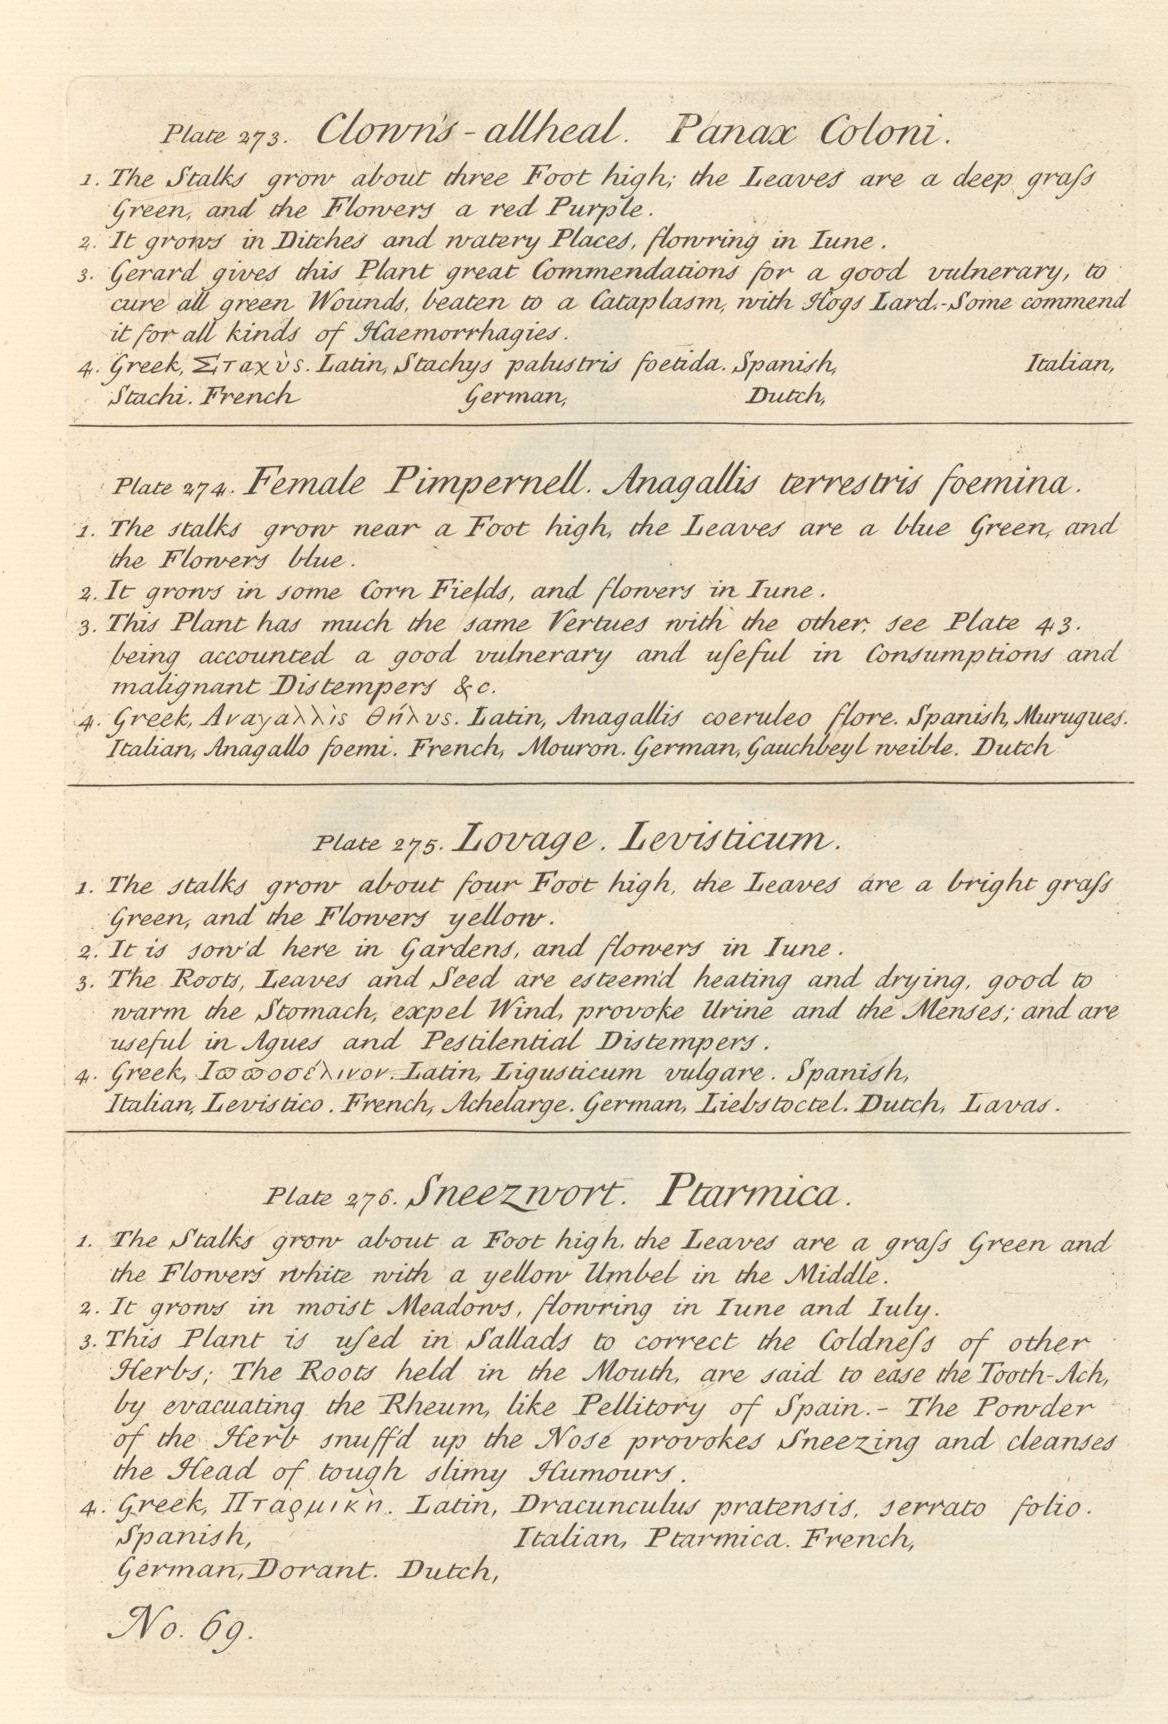 Plate 273. Clown's-allheal. Panax Coloni.
1. The Stalks grow about three Foot high; the Leaves are a deep graſs
Green, and the Flowers a red Purple.
2. It grows in Ditches and watery Places, flowring in Iune.
3. Gerard gives this Plant great Commendations for a good vulnerary, to
cure all green Wounds, beaten to a Cataplasm, with Hogs Lard.-Some commend
it for all kinds of Haemorrhagies.
4. Greek, Σταχὺς. Latin, Stachys palustris foetida. Spanish, Italian,
Stachi. French German, Dutch,
Plate 274. Female Pimpernell. Anagallis terrestris foemina.
1. The stalks grow near a Foot high, the Leaves are a blue Green, and
the Flowers blue.
2. It grows in some Corn Fields, and flowers in Iune.
3. This Plant has much the same Vertues with the other, see Plate 43.
being accounted a good vulnerary and uſeful in Consumptions and
malignant Distempers &c.
4. Greek, Αναγαλλὶς θήλυς. Latin, Anagallis coeruleo flore. Spanish, Murugues.
Italian, Anagallo foemi. French, Mouron. German, Gauchbeyl weible. Dutch
Plate 275. Lovage. Levisticum.
1. The stalks grow about four Foot high, the Leaves are a bright graſs
Green, and the Flowers yellow.
2. It is sow'd here in Gardens, and flowers in Iune.
3. The Roots, Leaves and Seed are esteem'd heating and drying, good to
warm the Stomach, expel Wind, provoke Urine and the Menses; and are
useful in Agues and Pestilential Distempers.
4. Greek, Ιϖϖοσέλινον. Latin, Ligusticum vulgare. Spanish,
Italian, Levistico. French, Achelarge. German, Liebstoctel. Dutch, Lavas.
Plate 276. Sneezwort. Ptarmica.
1. The Stalks grow about a Foot high, the Leaves are a graſs Green and
the Flowers white with a yellow Umbel in the Middle.
2. It grows in moist Meadows, flowring in Iune and Iuly.
3. This Plant is uſed in Sallads to correct the Coldneſs of other
Herbs; The Roots held in the Mouth, are said to ease the Tooth-Ach,
by evacuating the Rheum, like Pellitory of Spain.- The Powder
of the Herb snuff'd up the Nose provokes Sneezing and cleanses
the Head of tough slimy Humours.
4. Greek, Πταρμικὴ. Latin, Dracunculus pratensis, serrato folio.
Spanish, Italian, Ptarmica. French,
German, Dorant. Dutch,
No. 69.